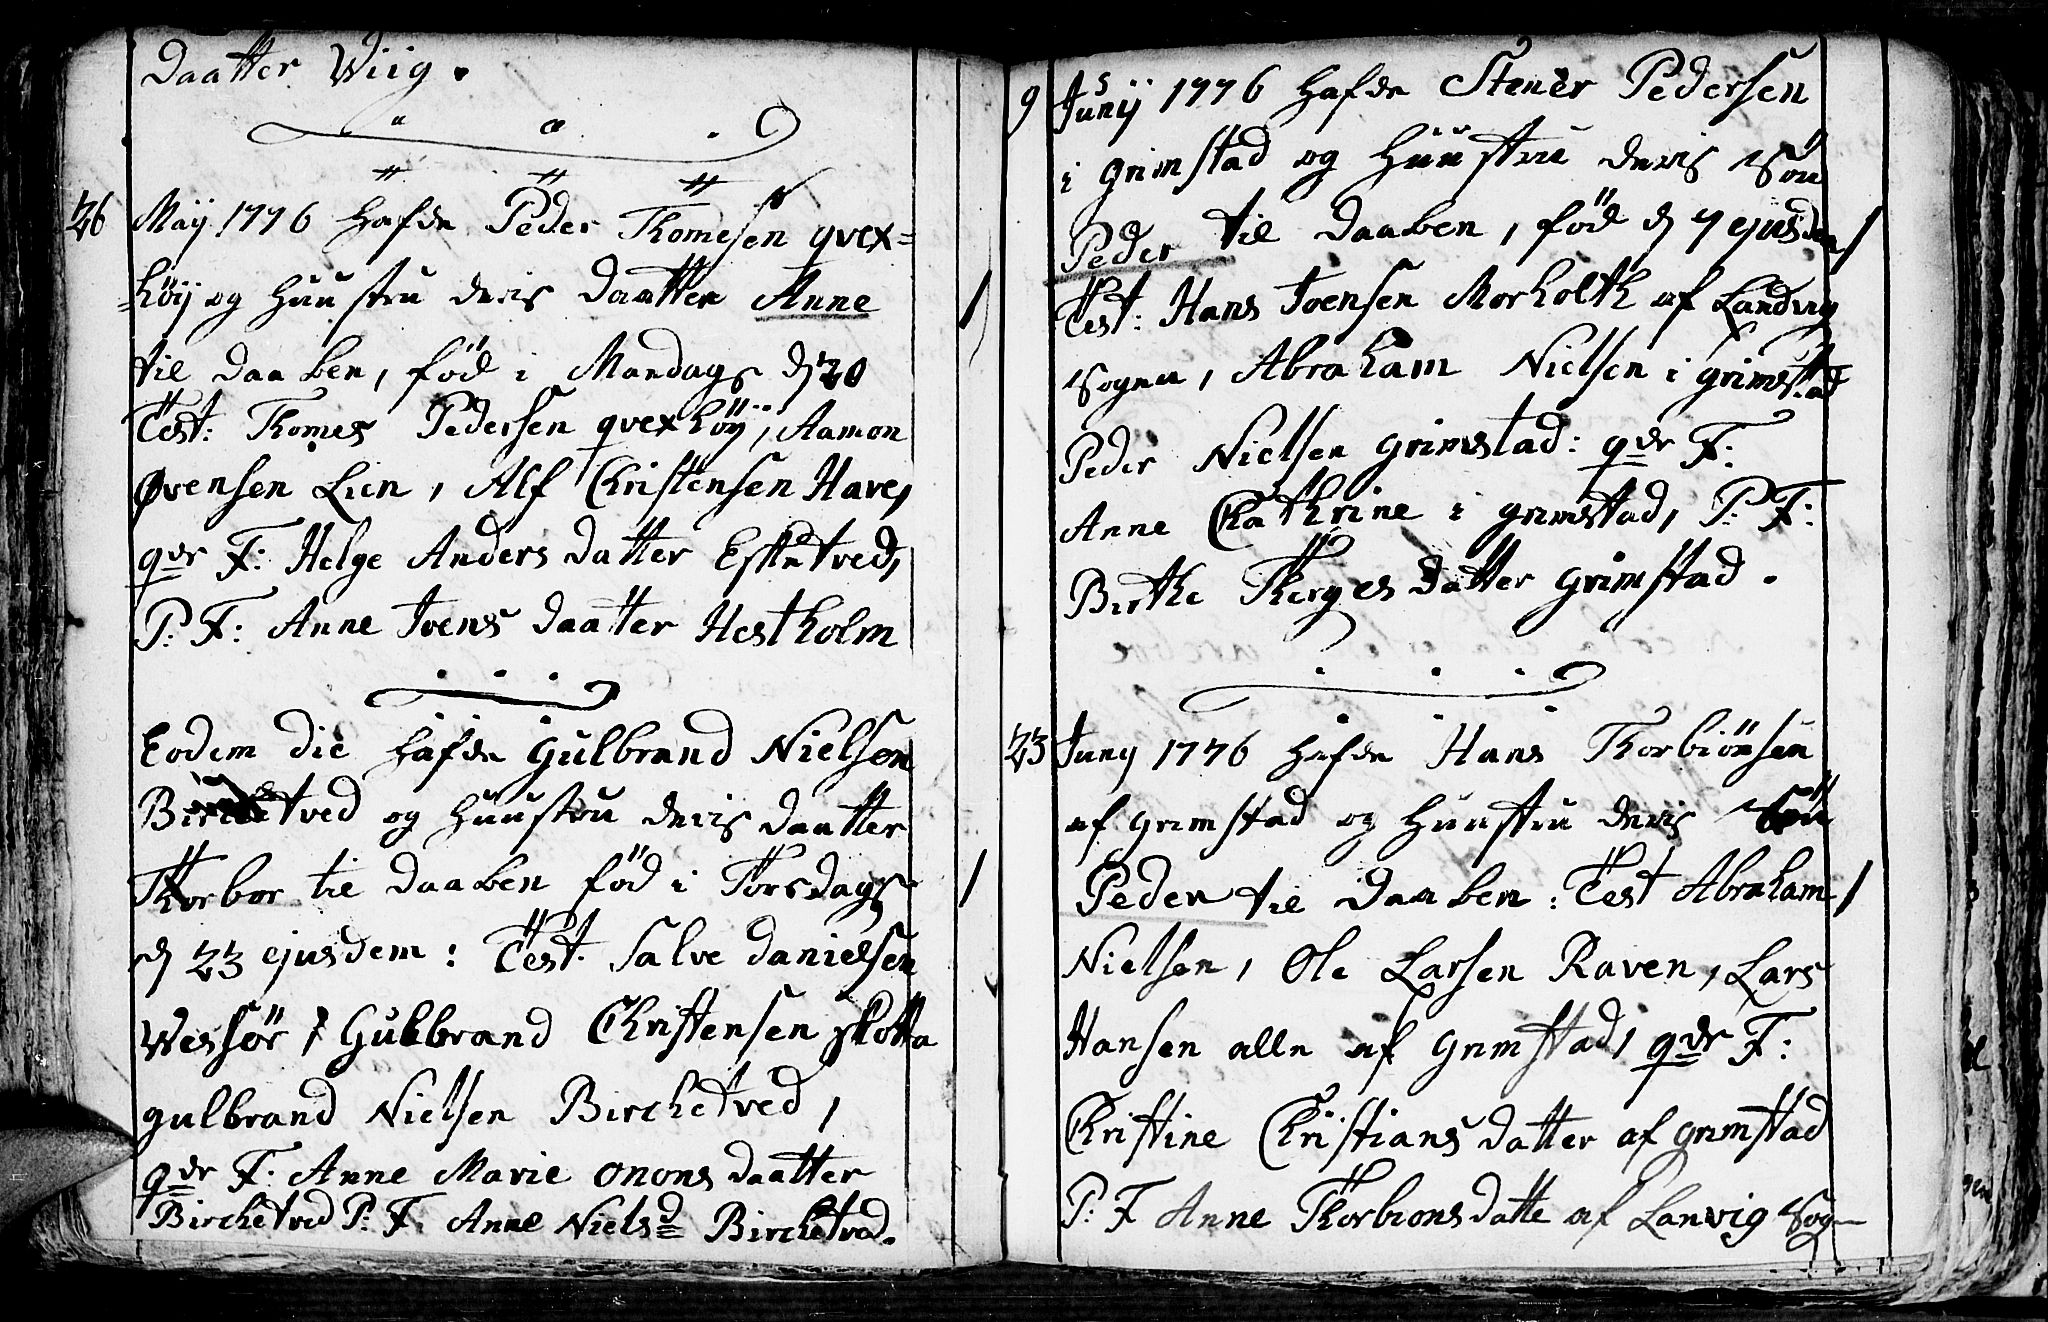 Daatter Wiig.
26 Maij 1776 hafde Peder Thomesen qvex=
=höij og Huustru deris Daatter Anne
til Daaben, föd i Mandags d 20
Test: Thomes Pedersen qvexhöij, Aamon
Øvensen Lien, Alf Christensen Have,
qvdr F: Helge Anders Datter Eskedtved,
P: F: Anne Joens Daatter Hestholm
Eodem die hafde Gulbrand Nielsen
Birketved og Huustru deris Daatter
Thorbor til Daaben föd i Torsdags
d 23 ejusdem: Test. Salve Danielsen
Wessör, Gulbrand Christensen skotta
gulbrand Nielsen Birchetved,
qvdr F: Anne Marie Onons Daatter
Birchetved P: F: Anne Nielsd Birchetved.
9 Junij 1776 hafde Stener Pedersen
i grimstad og Huustru deris Sön
Peder til Daaben, föd d 7 ejusdem
Test: Hans Joensen Morholth af Landvig
Sogn, Abraham Nielsen i grimstad
Peder Nielsen grimstad: qvdr F:
Anne Chathrine i grimstad, P: F:
Birthe Therges Datter grimstad.
23 Juny 1776 hafde Hans Thorbiönsen
af grimstad og Huustru deris Sön
Peder til Daaben: Test Abraham
Nielsen, Ole Larsen Raven, Lars
Hansen alle af Grimstad, qvdr F:
Christine Christians Datter af grimstad
P: F Anne Thorbions datte af Lanvig Sog-